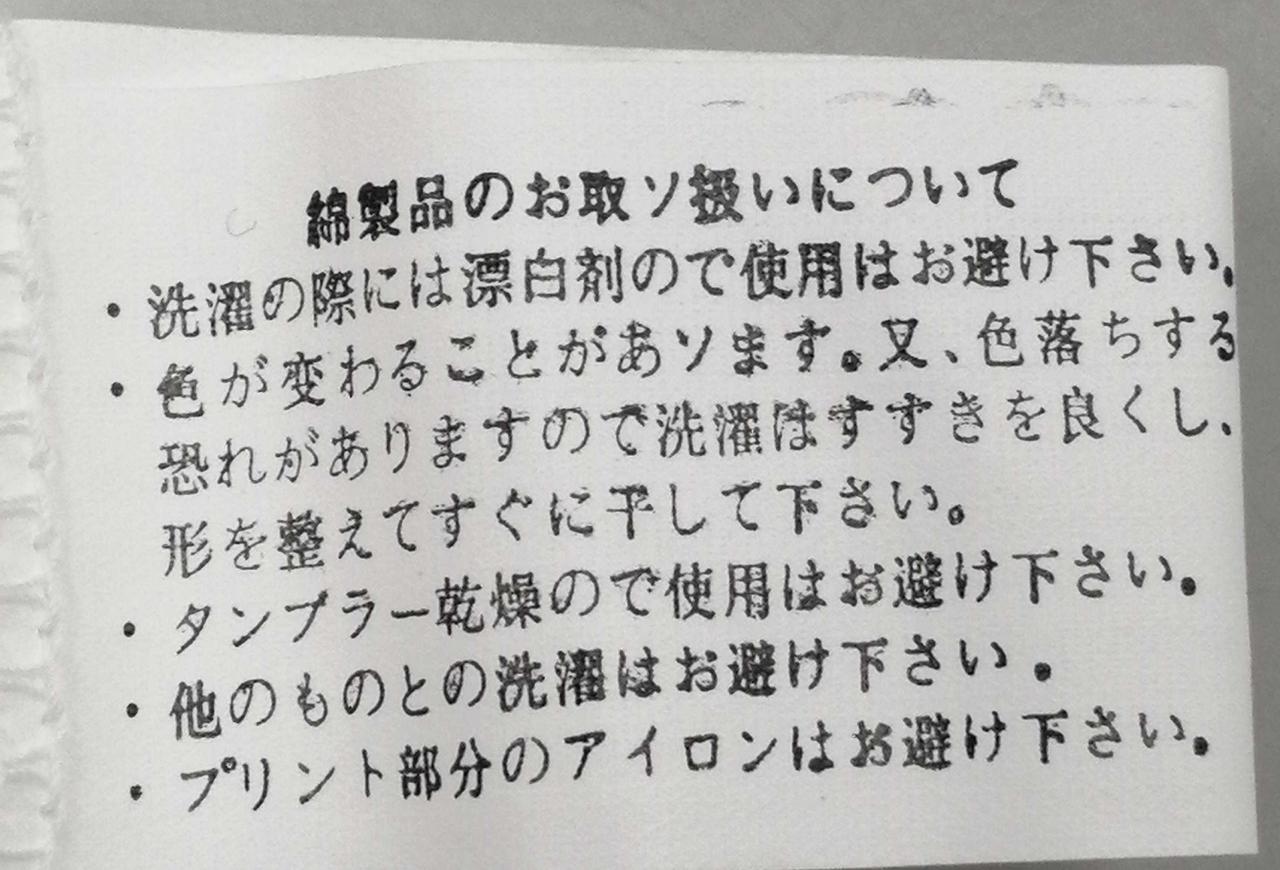 綿製品のお取ソ扱いについて
・洗濯の際には漂白剤ので使用はお避け下さい。
・色が変わることがあソます。又、色落ちする
恐れがありますので洗濯はすすきを良くし、
形を整えてすぐに干して下さい。
・タンブラー乾燥ので使用はお避け下さい。
・他のものとの洗濯はお避け下さい。
・プリント部分のアイロンはお避け下さい。